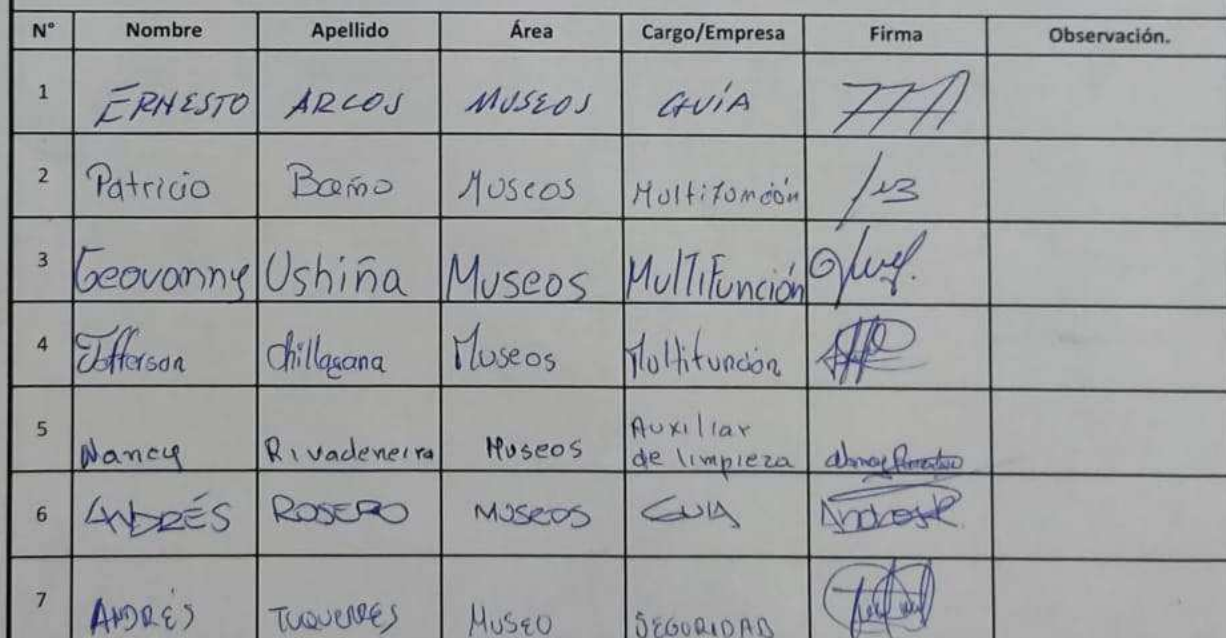 N° Nombre Apellido Área Cargo/Empresa Firma Observación.
1 ERNESTO ARCOS MUSEOS GUÍA
2 Patricio Baño Museos Multifunción
3 Geovanny Ushiña Museos MulTiFunción
4 Jefferson Chillagana Museos Multifunción
5 Nancy Rivadeneira Museos Auxiliar
de limpieza
6 ANDRÉS ROSERO MUSEOS GUIA
7 ANDRÉS TUQUERRES MUSEO SEGURIDAD